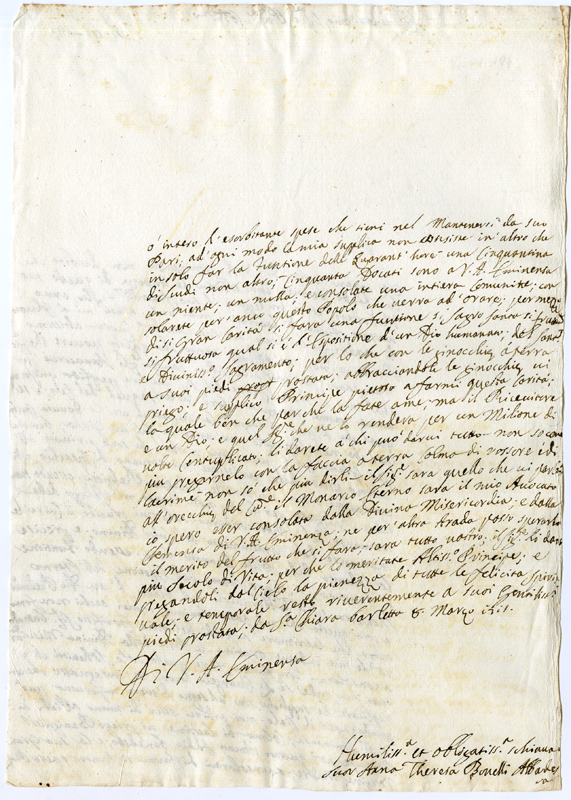 ò inteso l'esorbitante spese che tieni nel Mantenersi da suo
Pari, ad ogni modo la mia suplica non consiste in altro che
in solo far la funtione delle Quarant'hore: una Cinquantina
di scudi non altro; Cinquanta Docati sono a V. A. Eminensa
un niente, un nulla, e consolate una intiera Comunità; con
solarete per anco questo Popolo che verrà ad orare; per mezo
di sì gran Carità si farà una funtione sì sacro santa sì
sì fruttuosa qual si è l'Espositione d'un Dio humanato; del Santo
e Divinissimo Sacramento; per lo che con le Ginocchia a terra
a suoi piedi prostrata, abbracciandole le Ginocchia vi
priego, e suplico Principe pietoso a farmi questa Carità;
la quale ben che par che la fate a me, ma il Ricevitore
è un Dio; e quel Sig.re che ne la renderà per un Milione di
volte Centuplicata; li darete a chi può darvi tutto non so come
più pregarnelo con la faccia a terra colma di rossore e di
lacrime non sò che più dirli il Sig.re sarà quello che vi
all'orecchio del Core il Monarca Eterno sarà il mio Avocato
cò spero esser consolata dalla Divina Misericordia; e dalla
Clemensa di V. A. Eminensa; ne per altra strada posso sperarlo
il merito del frutto che si farà, sarà tutto vostro; il Sig.re li darà
più secolo di Vita; per che lo meritate Altiss.o Principe; e
pregandoli dal Cielo la pienezza di tutte le felicità spiri
tuale, e temporale resto riverentemente a suoi
piedi prostrata; da S.a Chiara Barletta 8 Marzo
Di V. A. Eminensa
Humiliss.a et obligatiss.a schiava
Suor Anna Theresa Bonelli Abbades
sa